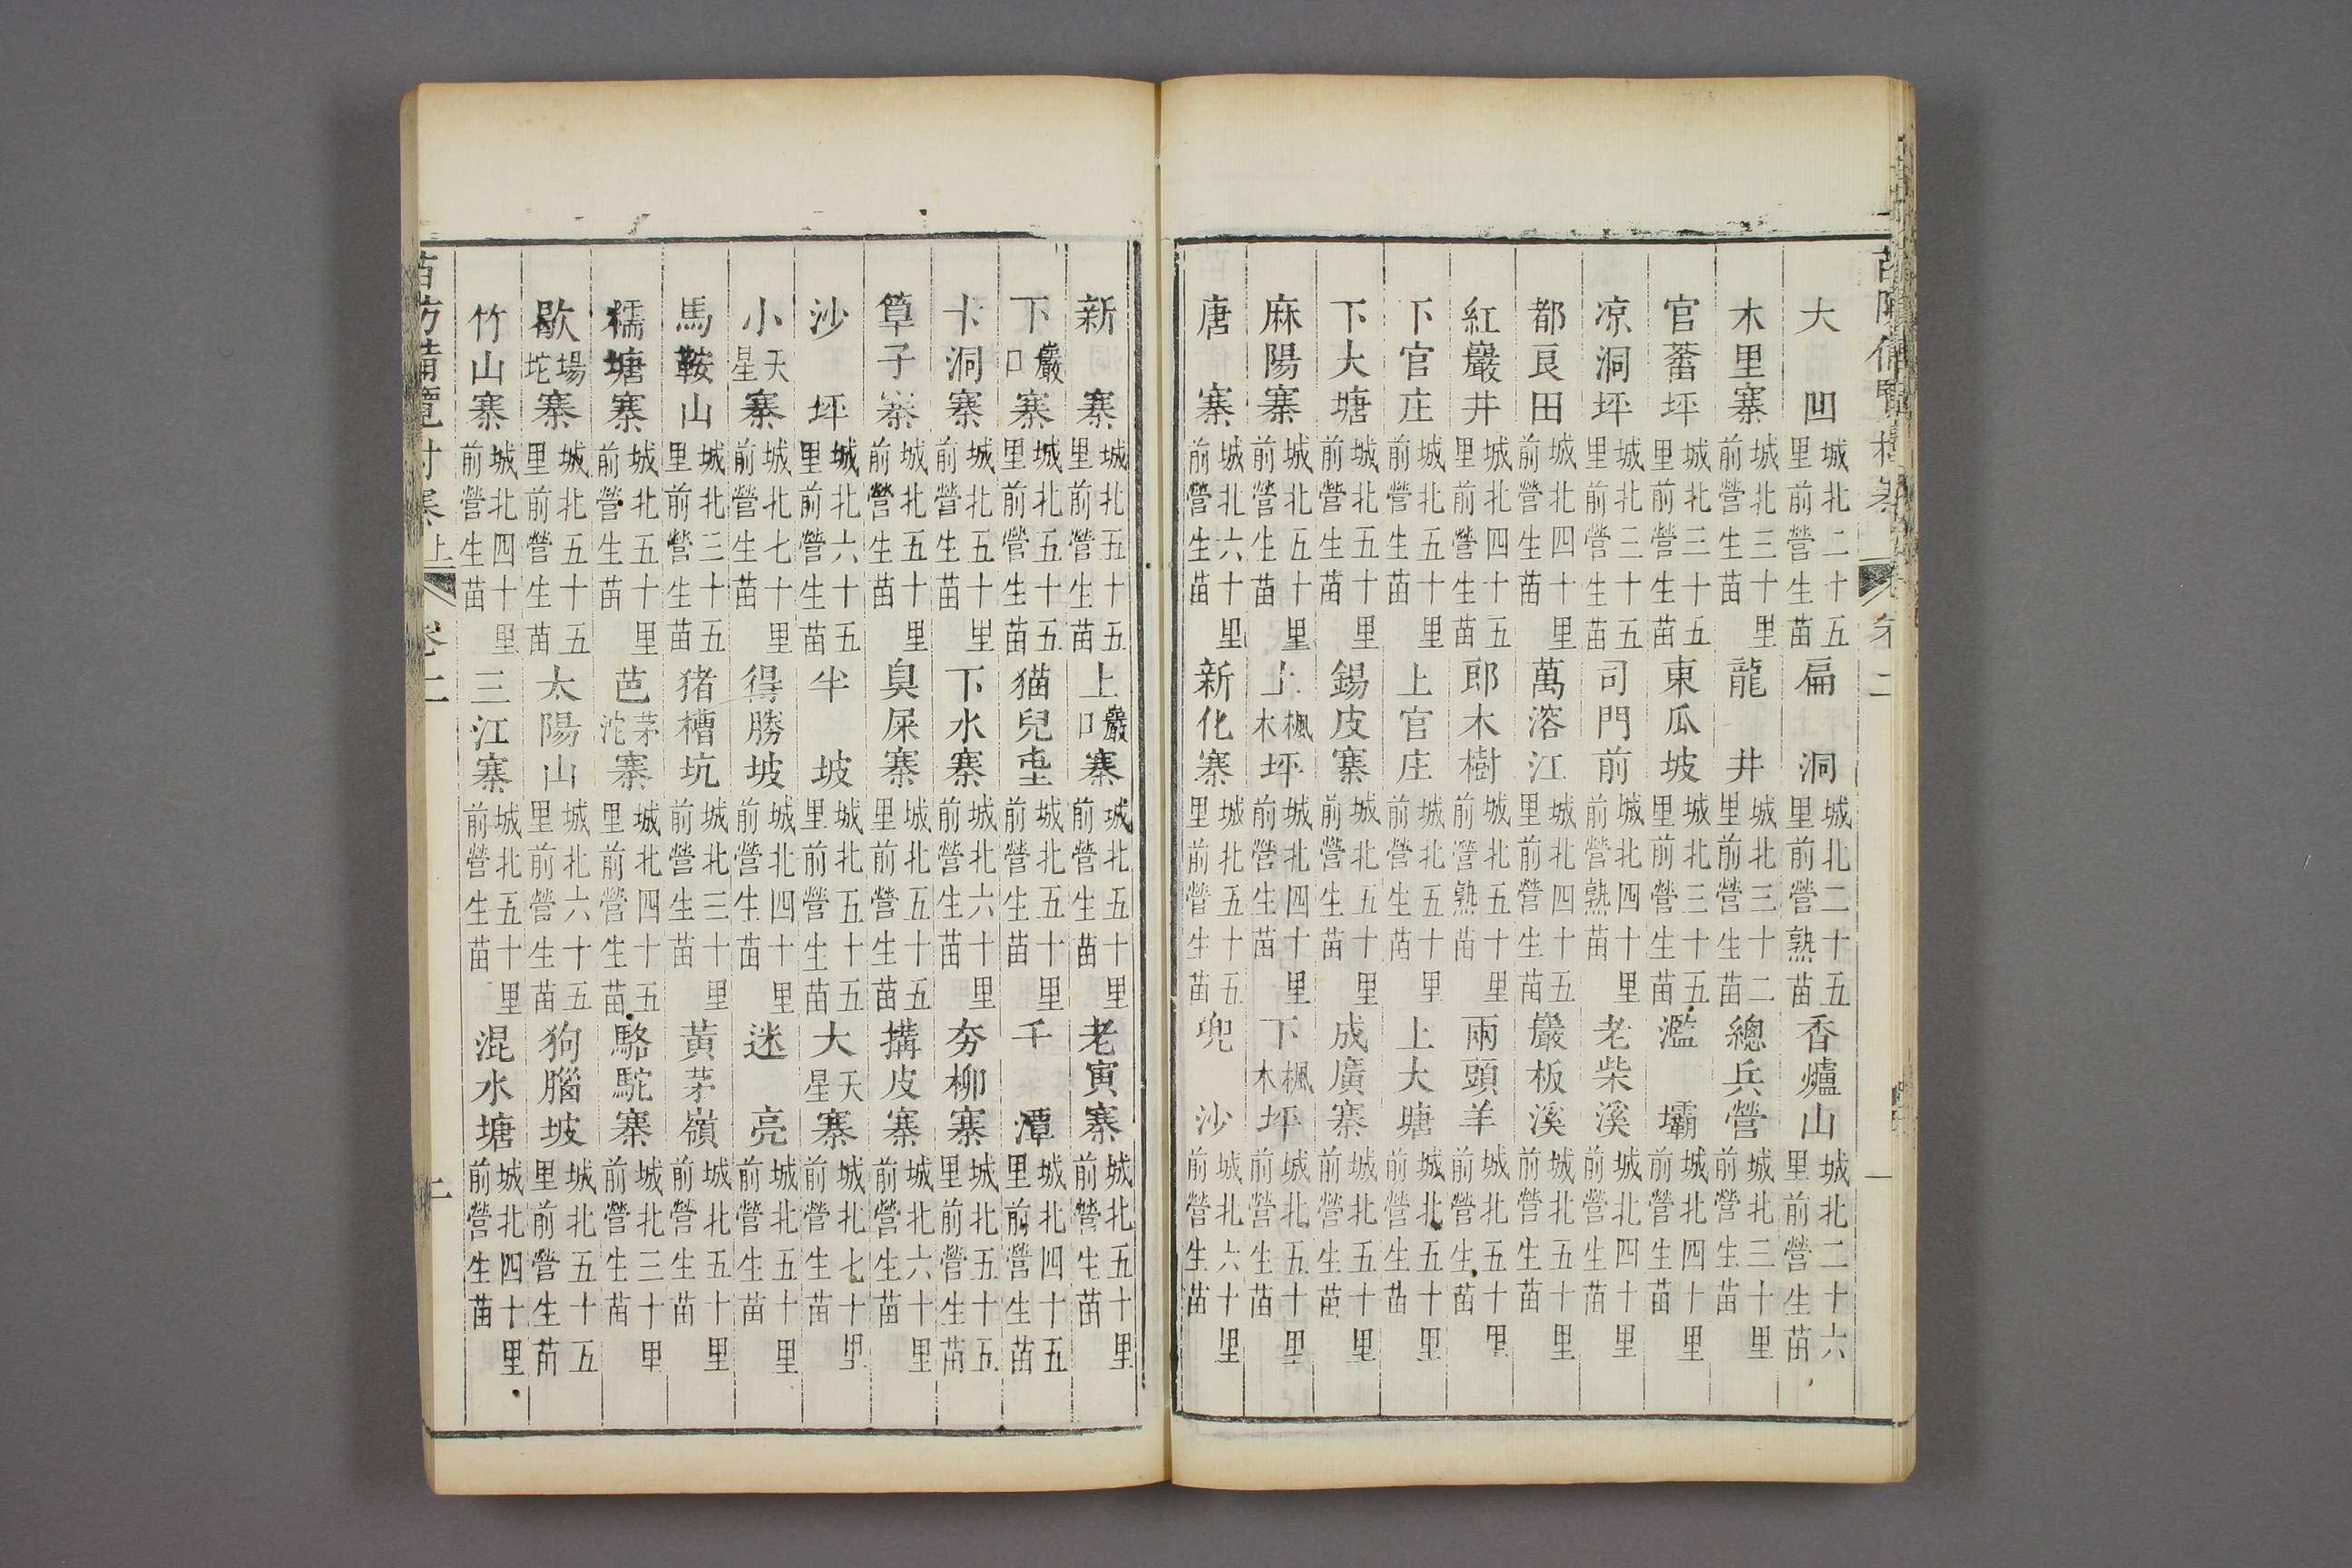 大凹城北二十五里前營生苗扁洞城北二十五里前營熟苗香爐山城北二十六里前營生苗
木里寨城北三十里前營生苗龍井城北三十二里前營生苗總兵營城北三十里前營生苗
官蓄坪城北三十五里前營生苗東瓜坡城北三十五里前營生苗濫壩城北四十里前營生苗
凉洞坪城北三十五里前營生苗司門前城北四十里前營熟苗老柴溪城北四十里前營生苗
都良田城北四十里前營生苗萬溶江城北四十五里前營生苗巖板溪城北五十里前營生苗
紅巖井城北四十五里前營生苗郎木樹城北五十里前營熟苗兩頭羊城北五十里前營生苗
下官庄城北五十里前營生苗上官庄城北五十里前營生苗上大塘城北五十里前營生苗
下大塘城北五十里前營生苗錫皮寨城北五十里前營生苗成廣寨城北五十里前營生苗
麻陽寨城北五十里前營生苗上楓木坪城北四十里前營生苗下楓木坪城北五十里前營生苗
唐寨城北六十里前營生苗新化寨城北五十五里前營生苗兜沙城北六十里前營生苗
新寨城北五十五里前營生苗上巖口寨城北五十里前營生苗老寅寨城北五十里前營生苗
下巖口寨城北五十五里前營生苗猫兒坉城北五十里前營生苗千潭城北四十五里前營生苗
卡洞寨城北五十里前營生苗下水寨城北六十里前營生苗夯柳寨城北五十五里前營生苗
篁子寨城北五十里前營生苗臭屎寨城北五十五里前營生苗搆皮寨城北六十里前營生苗
沙坪城北六十五里前營生苗半坡城北五十五里前營生苗大天星寨城北七十里前營生苗
小天星寨城北七十里前營生苗得勝坡城北四十里前營生苗迷亮城北五十里前營生苗
馬鞍山城北三十五里前營生苗猪槽坑城北三十里前營生苗黃茅嶺城北五十里前營生苗
糯塘寨城北五十里前營生苗芭茅沱寨城北四十五里前營生苗駱駝寨城北三十里前營生苗
歇場坨寨城北五十五里前營生苗太陽山城北六十五里前營生苗狗腦坡城北五十五里前營生苗
竹山寨城北四十里前營生苗三江寨城北五十里前營生苗混水塘城北四十里前營生苗
苗防備覽村寨上卷二